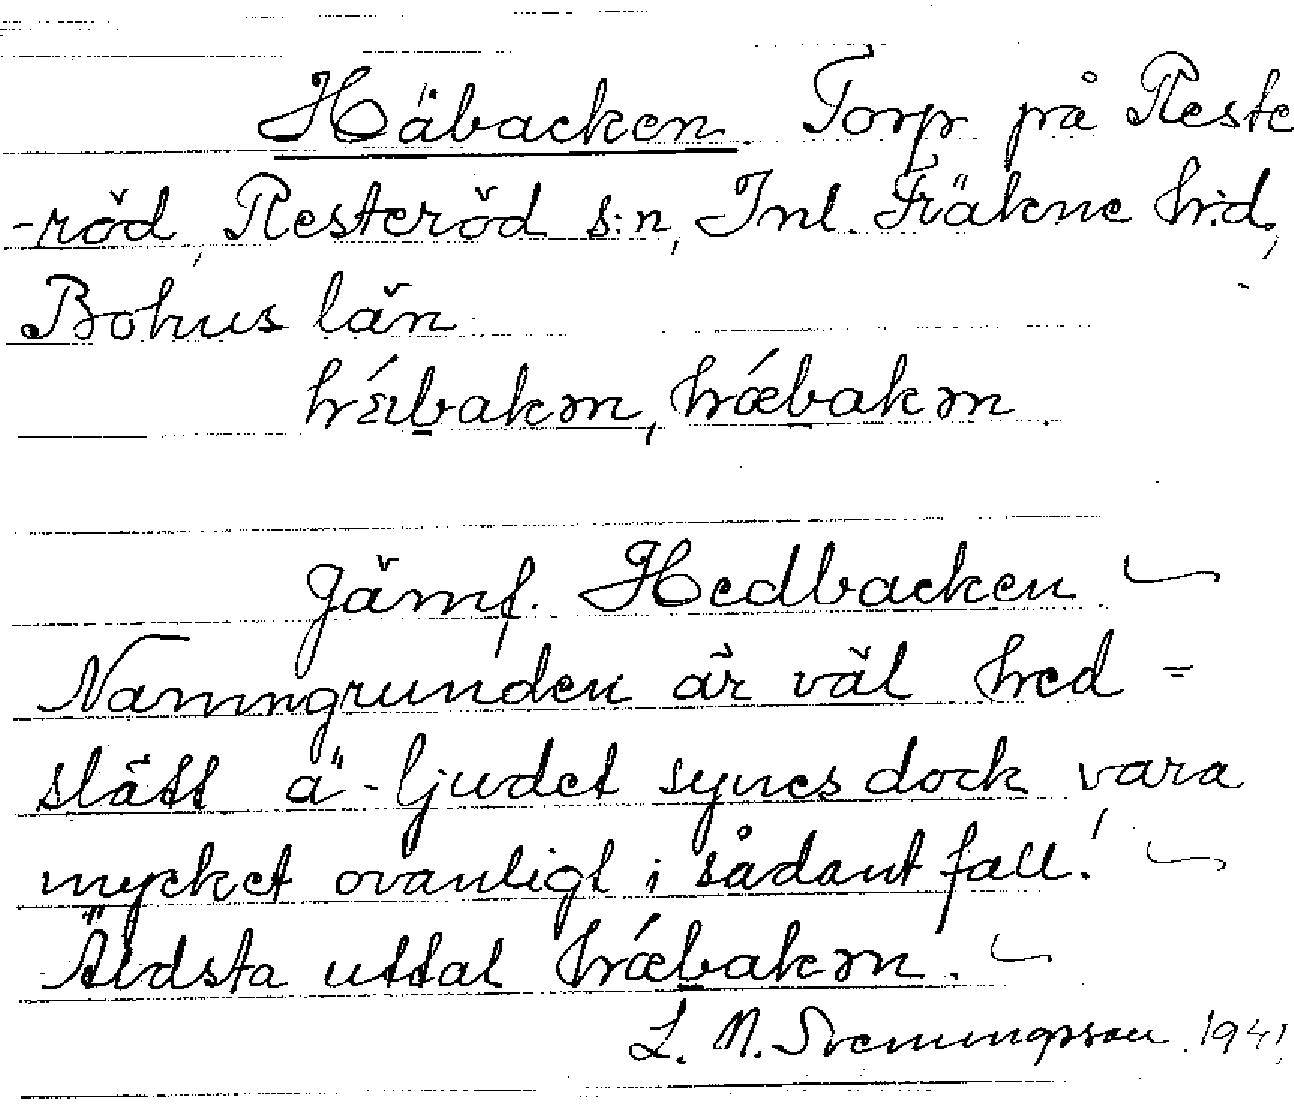 Häbacken. Torp på Reste
-röd, Resteröd s:n, Inl. Fräkne h:d,
Bohus län
hǽbakən, hǽbakən.
Jämf. Hedbacken
Namngrunden är väl hed =
slätt ä-ljudet synes dock vara
mycket ovanligt i sådant fall!
Äldsta uttal hǽbakən.
L. N. Svenungsson. 1941